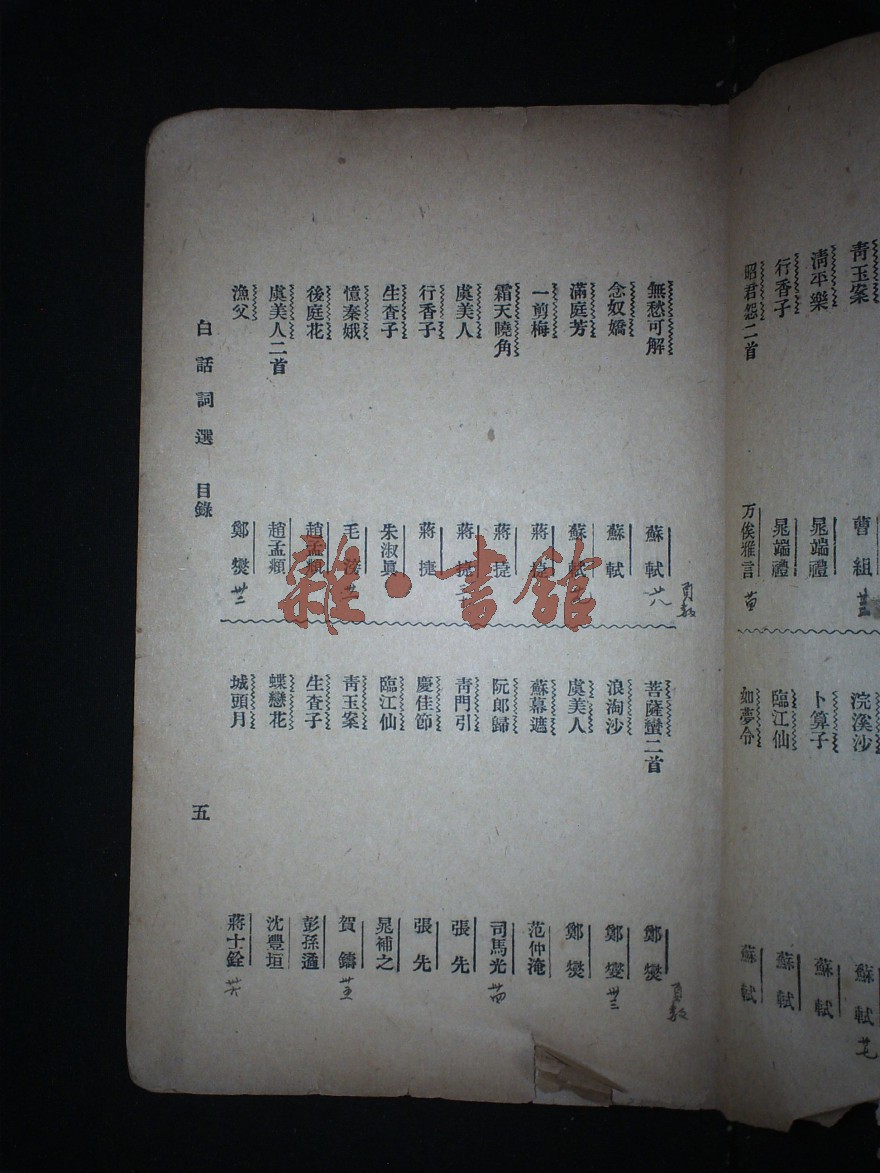 青玉案 曹組
清平樂 晁端禮
行香子 晁端禮
昭君怨二首 万俟雅言
浣溪沙 蘇軾
卜算子 蘇軾
臨江仙 蘇軾
如夢令 蘇軾
無愁可解 蘇軾 廿八
頁数
念奴嬌 蘇軾
滿庭芳 蘇軾
一剪梅 蔣捷
霜天曉角 蔣捷
虞美人 蔣捷
行香子 蔣捷
生查子 朱淑真
憶秦娥 毛滂
後庭花 趙孟頫
虞美人二首 趙孟頫
漁父 鄭燮 卅二
菩薩蠻二首 鄭燮
頁数
浪淘沙 鄭燮 卅三
虞美人 鄭燮
蘇幕遮 范仲淹
阮郎歸 司馬光 卅四
青門引 張先
慶佳節 張先
臨江仙 晁補之
青玉案 賀鑄 卅五
生查子 彭孫遹
蝶戀花 沈豐垣
城頭月 蔣士銓 卅六
白話詞選 目錄
五
雜·書館